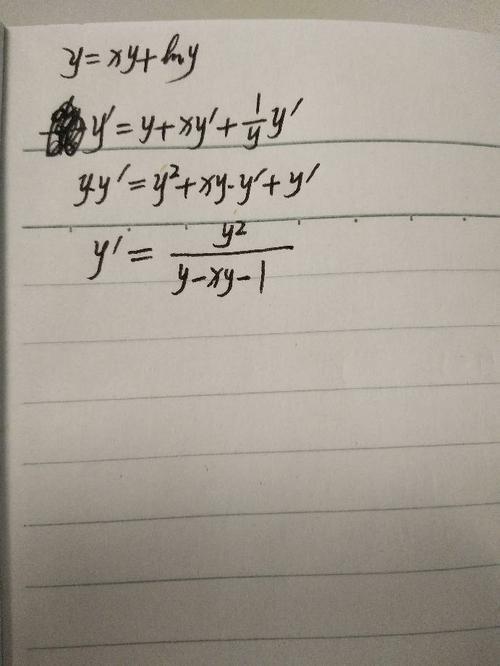 y=xy+lny
y'=y+xy'+1/y y'
y·y'=y²+xy·y'+y'
y'=y²/(y-xy-1)